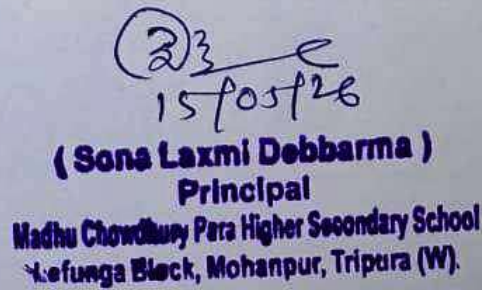 15/05/26
( Sona Laxmi Debbarma )
Principal
Madhu Chowdhury Para Higher Secondary School
Lefunga Block, Mohanpur, Tripura (W).